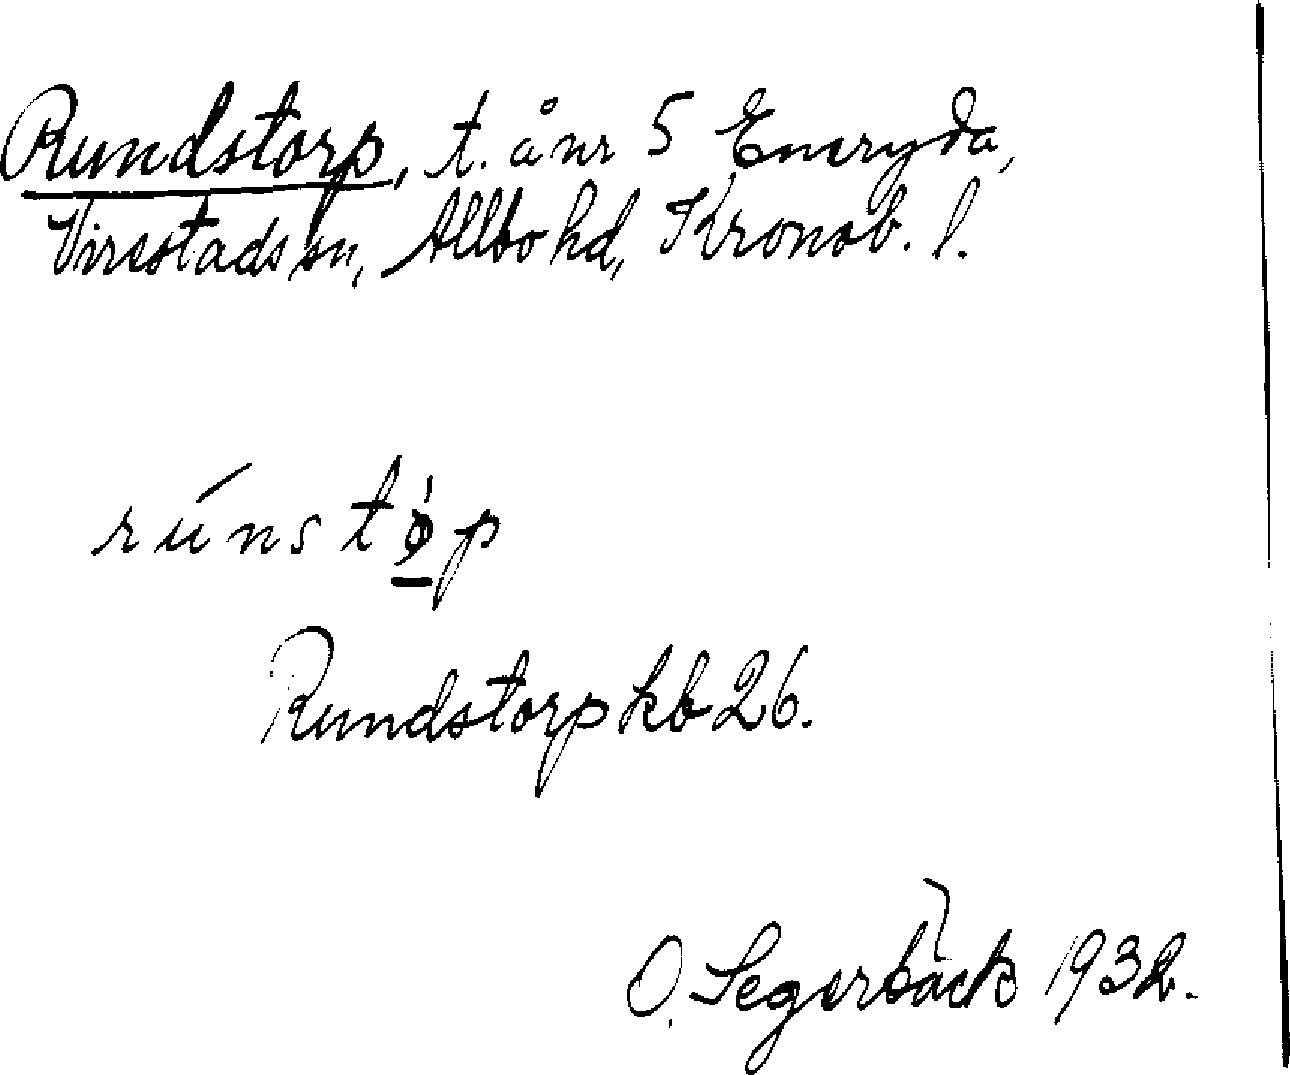 Rundstorp, t. å nr 5 Eneryda,
Virestads sn, Allbo hd, Kronob. l.
rúnstǫ́p
Rundstorp kb 26.
O. Segerbäck 1932.